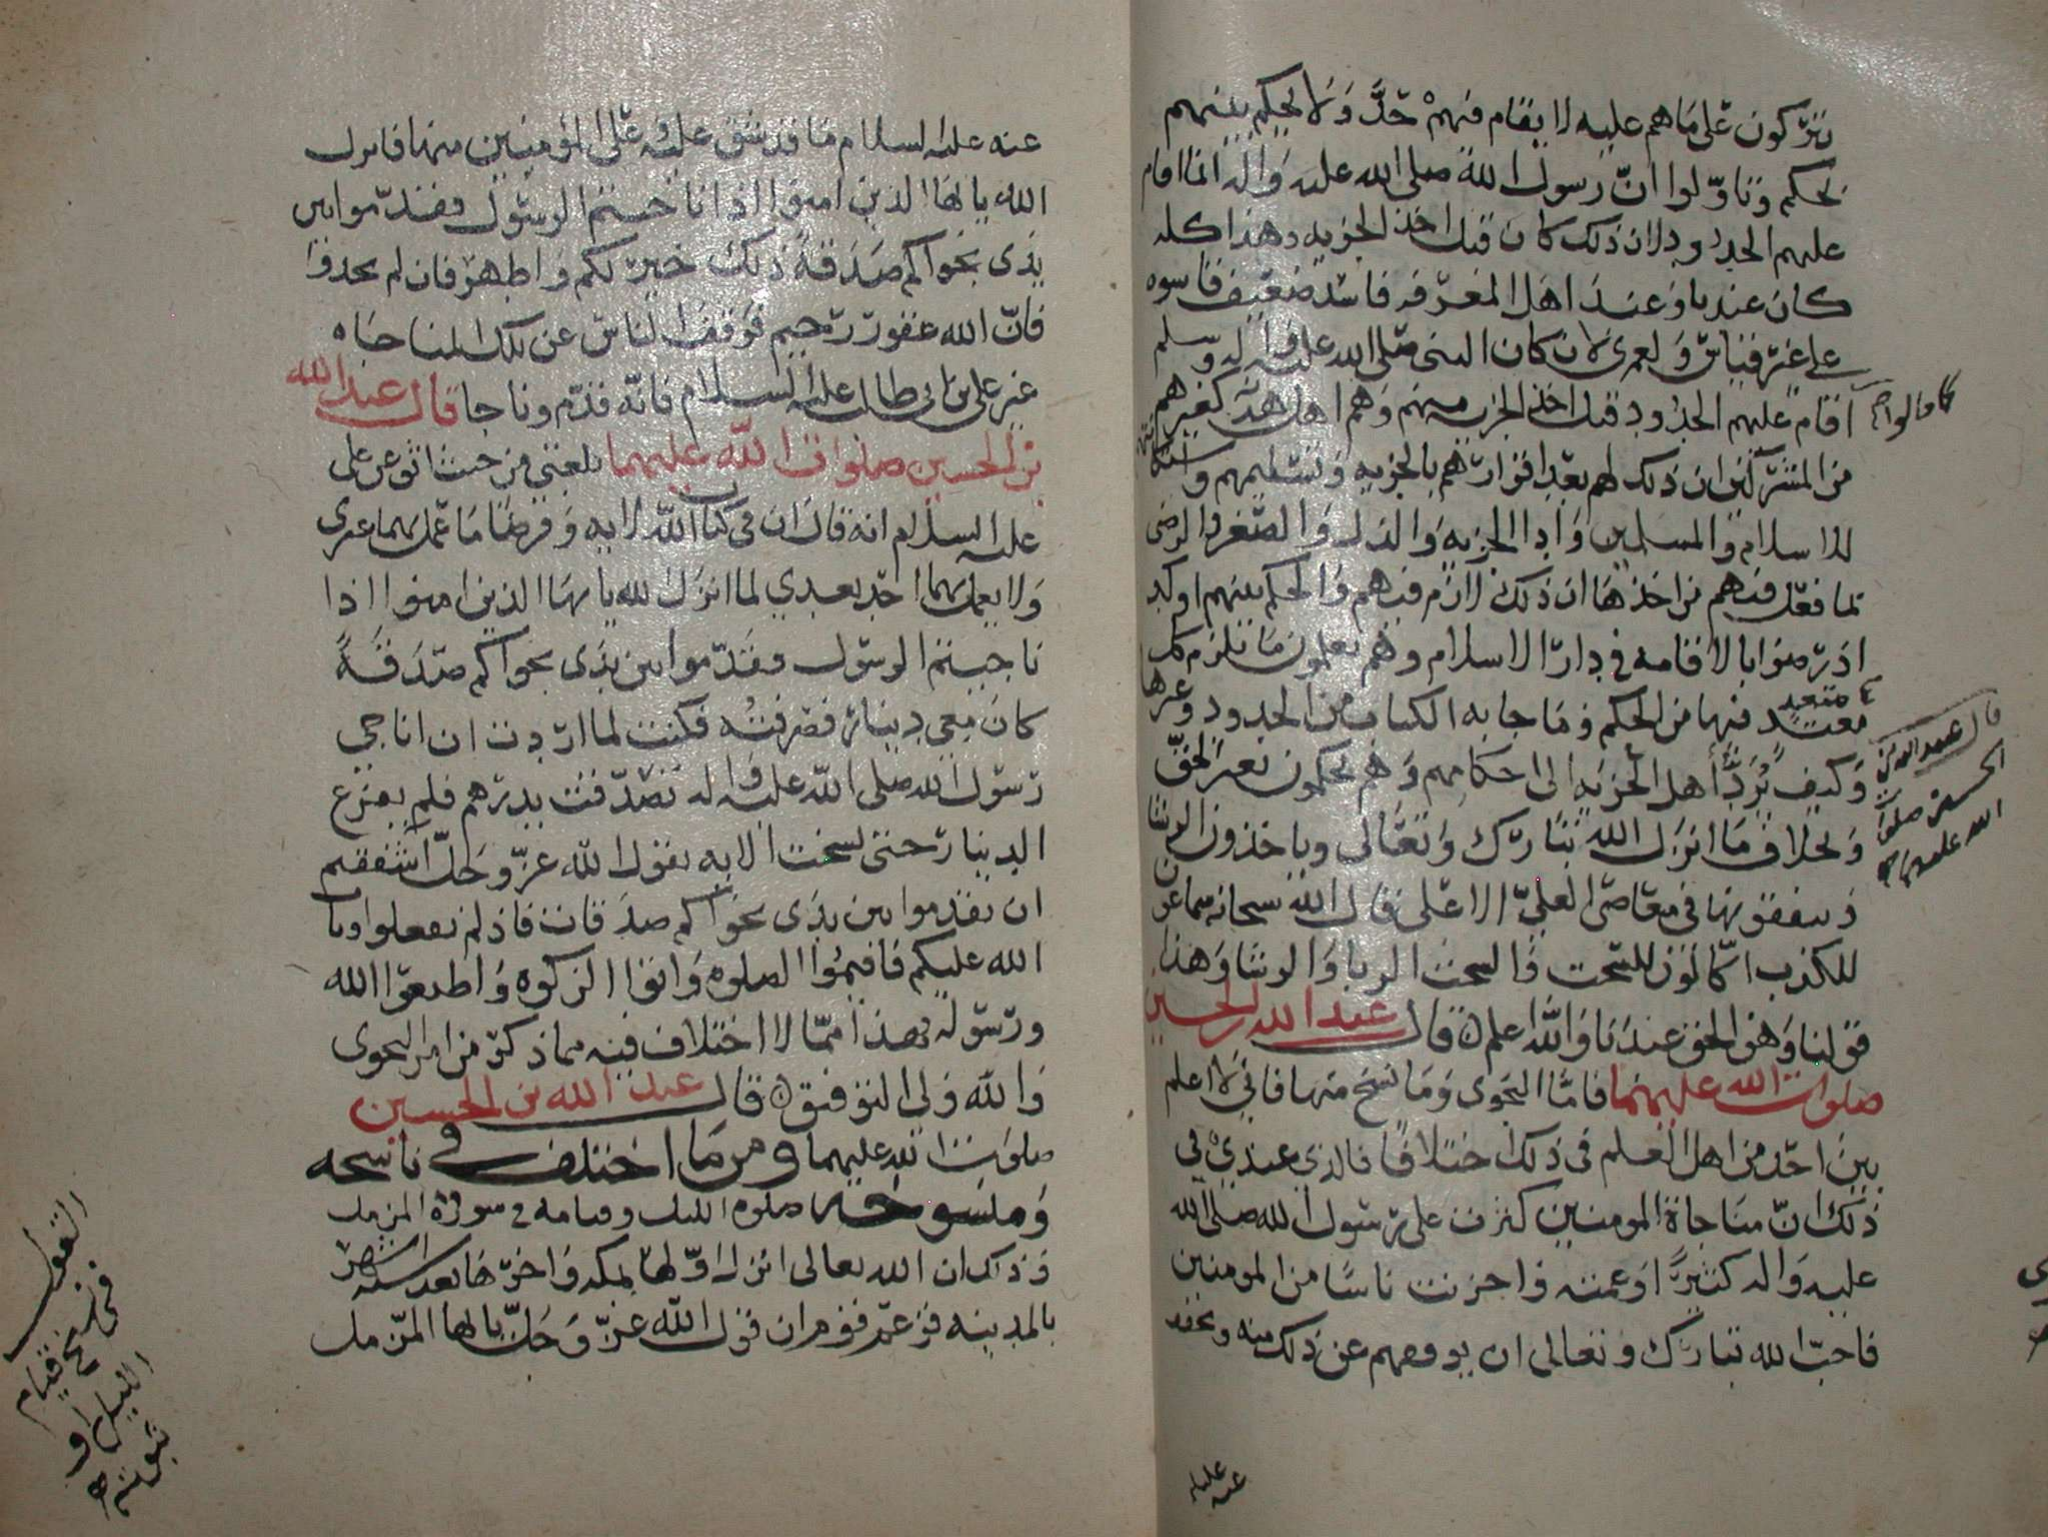 يتركون على ما هم عليه لا يقام فيهم حد ولا يحكم بينهم
بحكم وتأولوا ان رسول الله صلى الله عليه واله انما اقام
عليهم الحدود لان ذلك كان قبل اخذ الجزيه وهذا كله
كان عندنا وعند اهل المعرفه فاسد ضعيف قاسوه
على غير قياس ولعمرى لان كان النبى صلى الله عليه واله وسلم
اقام عليهم الحدود قبل اخذ الجزيه منهم وهم اهل هدنه كغيرهم
كما قالوا
من المشركين ان ذلك لهم بعد اقرارهم بالجزيه وتسليمهم
للاسلام والمسلمين وادا الجزيه والذل والصغر والرضى
بما فعل فيهم من اخذها ان ذلك لازم فيهم والحكم بينهم اوكد
اذ رضوا بالاقامه فى دار الاسلام وهم يعلمون ما يلزم كل
معتد فيها من الحكم وما جا به الكتاب من الحدود وغيرها
متعد
قال عبد الله بن
الحسين صلوات
الله عليهما
وكيف يرد اهل الجزيه الى احكامهم وهم يحكمون بغير الحق
وبخلاف ما انزل الله تبارك وتعالى وياخذون الرشا
وينفقونها فى معاصى العلي الاعلى قال الله سبحانه سماعون
للكذب اكالون للسحت والسحت الربا والرشا وهذا
قولنا وهو الحق عندنا والله اعلم قال عبد الله بن الحسين
صلوات الله عليهما فاما النجوى وما نسخ منها فانى لا اعلم
بين احد من اهل العلم فى ذلك اختلافا فالذى عندي في
ذلك ان مناجاة المومنين كثرت على رسول الله صلى الله
عليه واله كثيرا وغمته واحزنت ناسا من المومنين
فاحب الله تبارك وتعالى ان يوقفهم عن ذلك منه ويخفف
عنه عليه
عنه عليه السلام ما قد شق عليه وعلى المؤمنين منها فانزل
الله يا ايها الذين امنوا اذا ناجيتم الرسول فقدموا بين
يدى نجواكم صدقة ذلك خير لكم واطهر فان لم تجدوا
فان الله غفور رحيم فوقف الناس عن تلك المناجاه
غير على بن ابى طالب عليه السلام فانه قدم وناجا قال عبد الله
بن الحسين صلوات الله عليهما بلغنى من حيث اثق عن على
عليه السلام انه قال ان فى كتاب الله لايه وفرضا ما عمل بهما غيرى
ولا يعمل بهما احد بعدي لما انزل الله يا ايها الذين امنوا اذا
ناجيتم الرسول فقدموا بين يدى نجواكم صدقة
كان معى دينار فصرفته فكنت لما اردت ان اناجي
رسول الله صلى الله عليه واله تصدقت بدرهم فلم يفرغ
الدينار حتى نسخت الايه بقول الله عز وجل أاشفقتم
ان تقدموا بين يدى نجواكم صدقات فاذ لم تفعلوا وتاب
الله عليكم فاقيموا الصلوه واتوا الزكوه واطيعوا الله
ورسوله فهذا مما لا اختلاف فيه مما ذكر من امر النجوى
والله ولي التوفيق قال عبد الله بن الحسين
صلوات الله عليهما ومن ما اختلف فى ناسخه
ومنسوخه صلوه الليل وقيامه فى سورة المزمل
وذلك ان الله تعالى انزل اولها بمكه واخرها بعد سنه
بالمدينه فزعم قوم ان قول الله عز وجل يا ايها المزمل
القول
فى نسخ قيام
الليل او
ثبوته